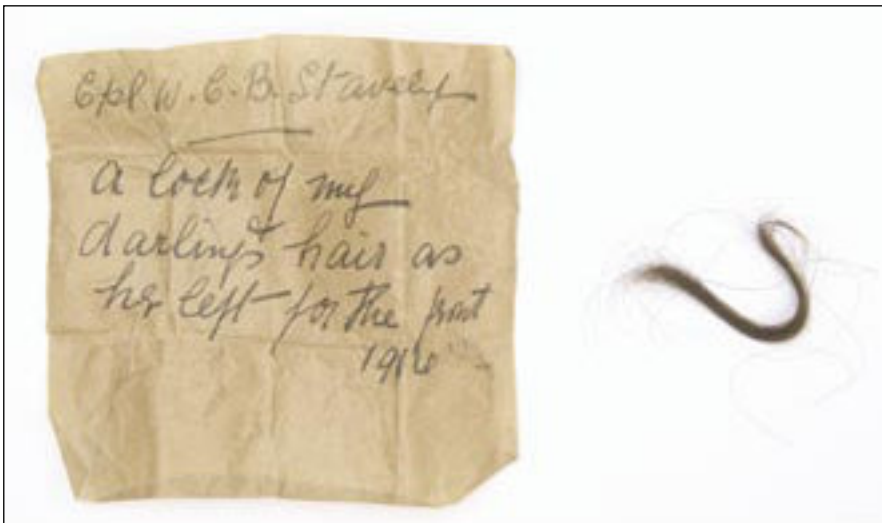 Cpl W. C. B. Stavely
a lock of my
darling's hair as
he left for the front
191